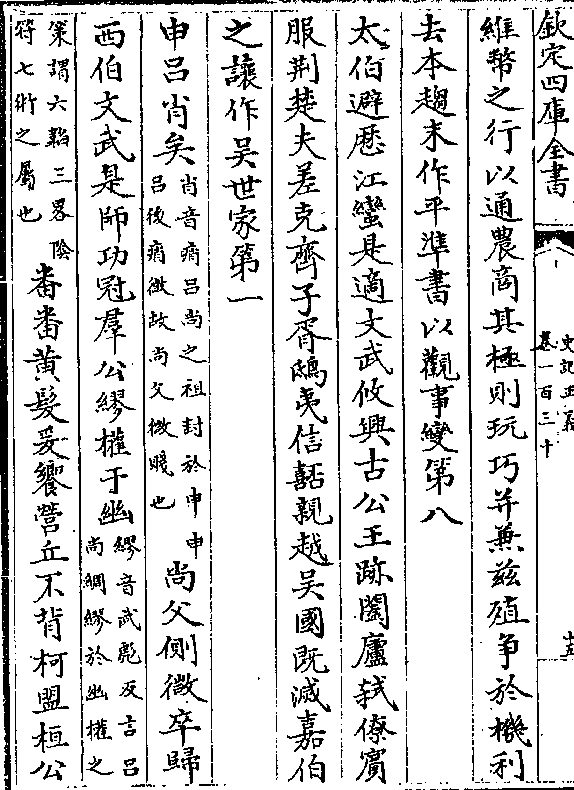 欽定四庫全書
史記正義
卷一百三十
十五
維幣之行以通農商其極則玩巧并兼茲殖爭於機利
去本趨末作平準書以觀事變第八
太伯避歷江蠻是適文武攸興古公王跡闔廬弑僚賓
服荆楚夫差克齊子胥鴟夷信嚭親越吳國既滅嘉伯
之讓作吳世家第一
申呂肖矣
肖音痟呂尚之祖封於申申
呂後痟微故尚父微賤也
尚父側微卒歸
西伯文武是師功冠羣公繆權于幽
繆音武彪反言呂
尚綢繆於幽權之
策謂六韜三畧陰
符七術之屬也
番番黄髮爰饗營丘不背柯盟桓公